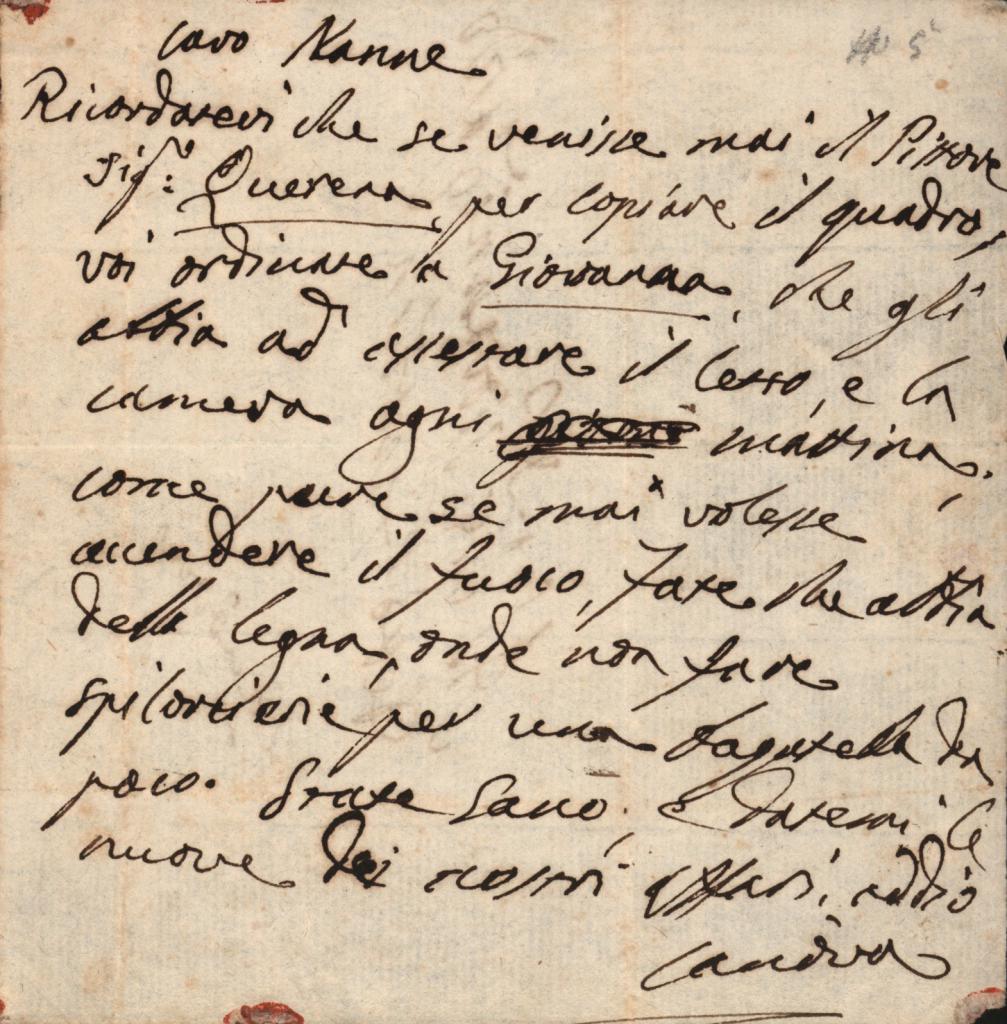 caro Nanne
Ricordatevi che se venisse mai il Pittore
Sig.r: Querena per copiare il quadro,
voi ordinate a Giovanna, che gli
abbia ad assestare il letto, e la
camera ogni mattina,
come pure se mai volesse
accendere il fuoco, fate che abbia
della legna, onde non fare
spilorcierie per una bagatella da
poco. State sano, e datemi le
nuove dei nostri affari, addio
Canova